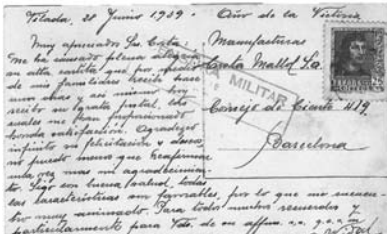 Tolada, 28 Junio 1939 - Año de la Victoria
Muy apreciado Sr. Costa
Me ha causado plenas alegria
su atta cartita que por medio
de mis familiares recibi hace
unos dias y asi mismo hoy
recibo su grata postal, las
cuales me han proporcionado
honda satisfacción. Agradezco
infinito su felicitación y deseos,
no puedo menos que reafirmar
una vez mas mi agradecimien
to. Sigo con buena salud, todas
las caracteristicas son favorables, por lo que me encuen
tro muy animado. Para todos muchos recuerdos y
particularmente para Vda. de su affmo. s.s. q.e.s.m.
Manufacturas
Costa Mallol S.a.
Consejo de Ciento 419
Barcelona
MILITAR